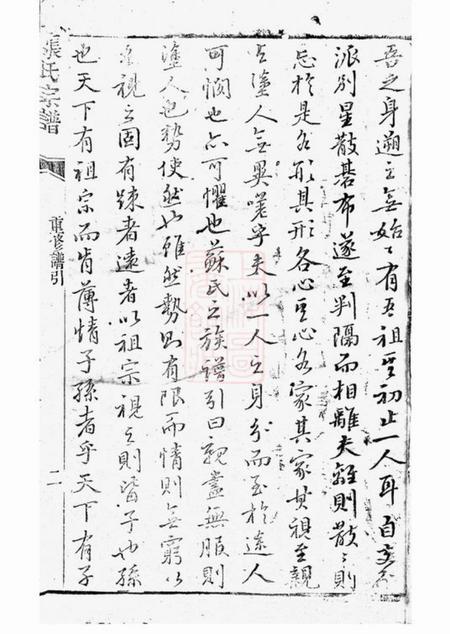 吾之身遡之無始〻有吾祖其初止一人耳自支分
派别星散碁布遂至判隔而相離夫離則散〻則
忘於是各形其形各心其心各家其家其視至親
与塗人無異嗟乎夫以一人之身分而至於塗人
可憫也亦可懼也蘇氏之族譜引曰親盡無服則
塗人也勢使然也雖然勢則有限而情則無窮以
視之固有疎者遠者以祖宗視之則皆子也孫
也天下有祖宗而肯薄情子孫者乎天下有子
張氏宗譜
重修譜引
二